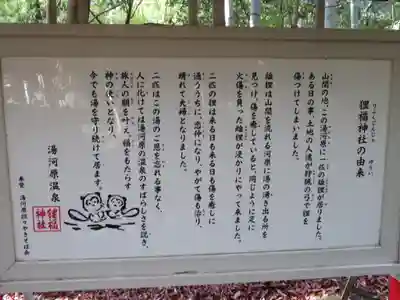 狸福神社の由来
山間の地、この湯河原に一匹の雄狸が居りました。
ある日の事、土地の人達が狩猟の弓で狸を
傷つけてしまいました。
雄狸は山間を流れる河原に湯の湧き出る所を
見つけ、傷を癒していると、同じように足に
火傷を負った雌狸が浸かりにやって来ました。
二匹の狸は来る日も来る日も傷を癒しに
通ううちに、恋仲になり、やがて傷も治り、
晴れて夫婦となりました。
二匹はこの湯のご恩を忘れる事なく、
人に化けては湯河原の温泉のすばらしさを説き、
旅人の願を叶え、福をもたらす
神の使いとなり、
今でも湯を守り続けて居ます。
湯河原温泉
狸福神社
奉賛 湯河原担々やきそば会